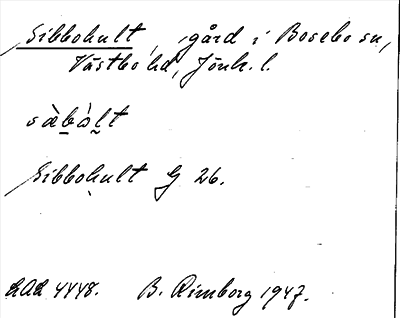 Sibbohult, gård i Bosebo sn,
Västbo hd, Jönk. l.
sàbàlt
Sibbohult G 26.
4448. B. Rimborg 1947.